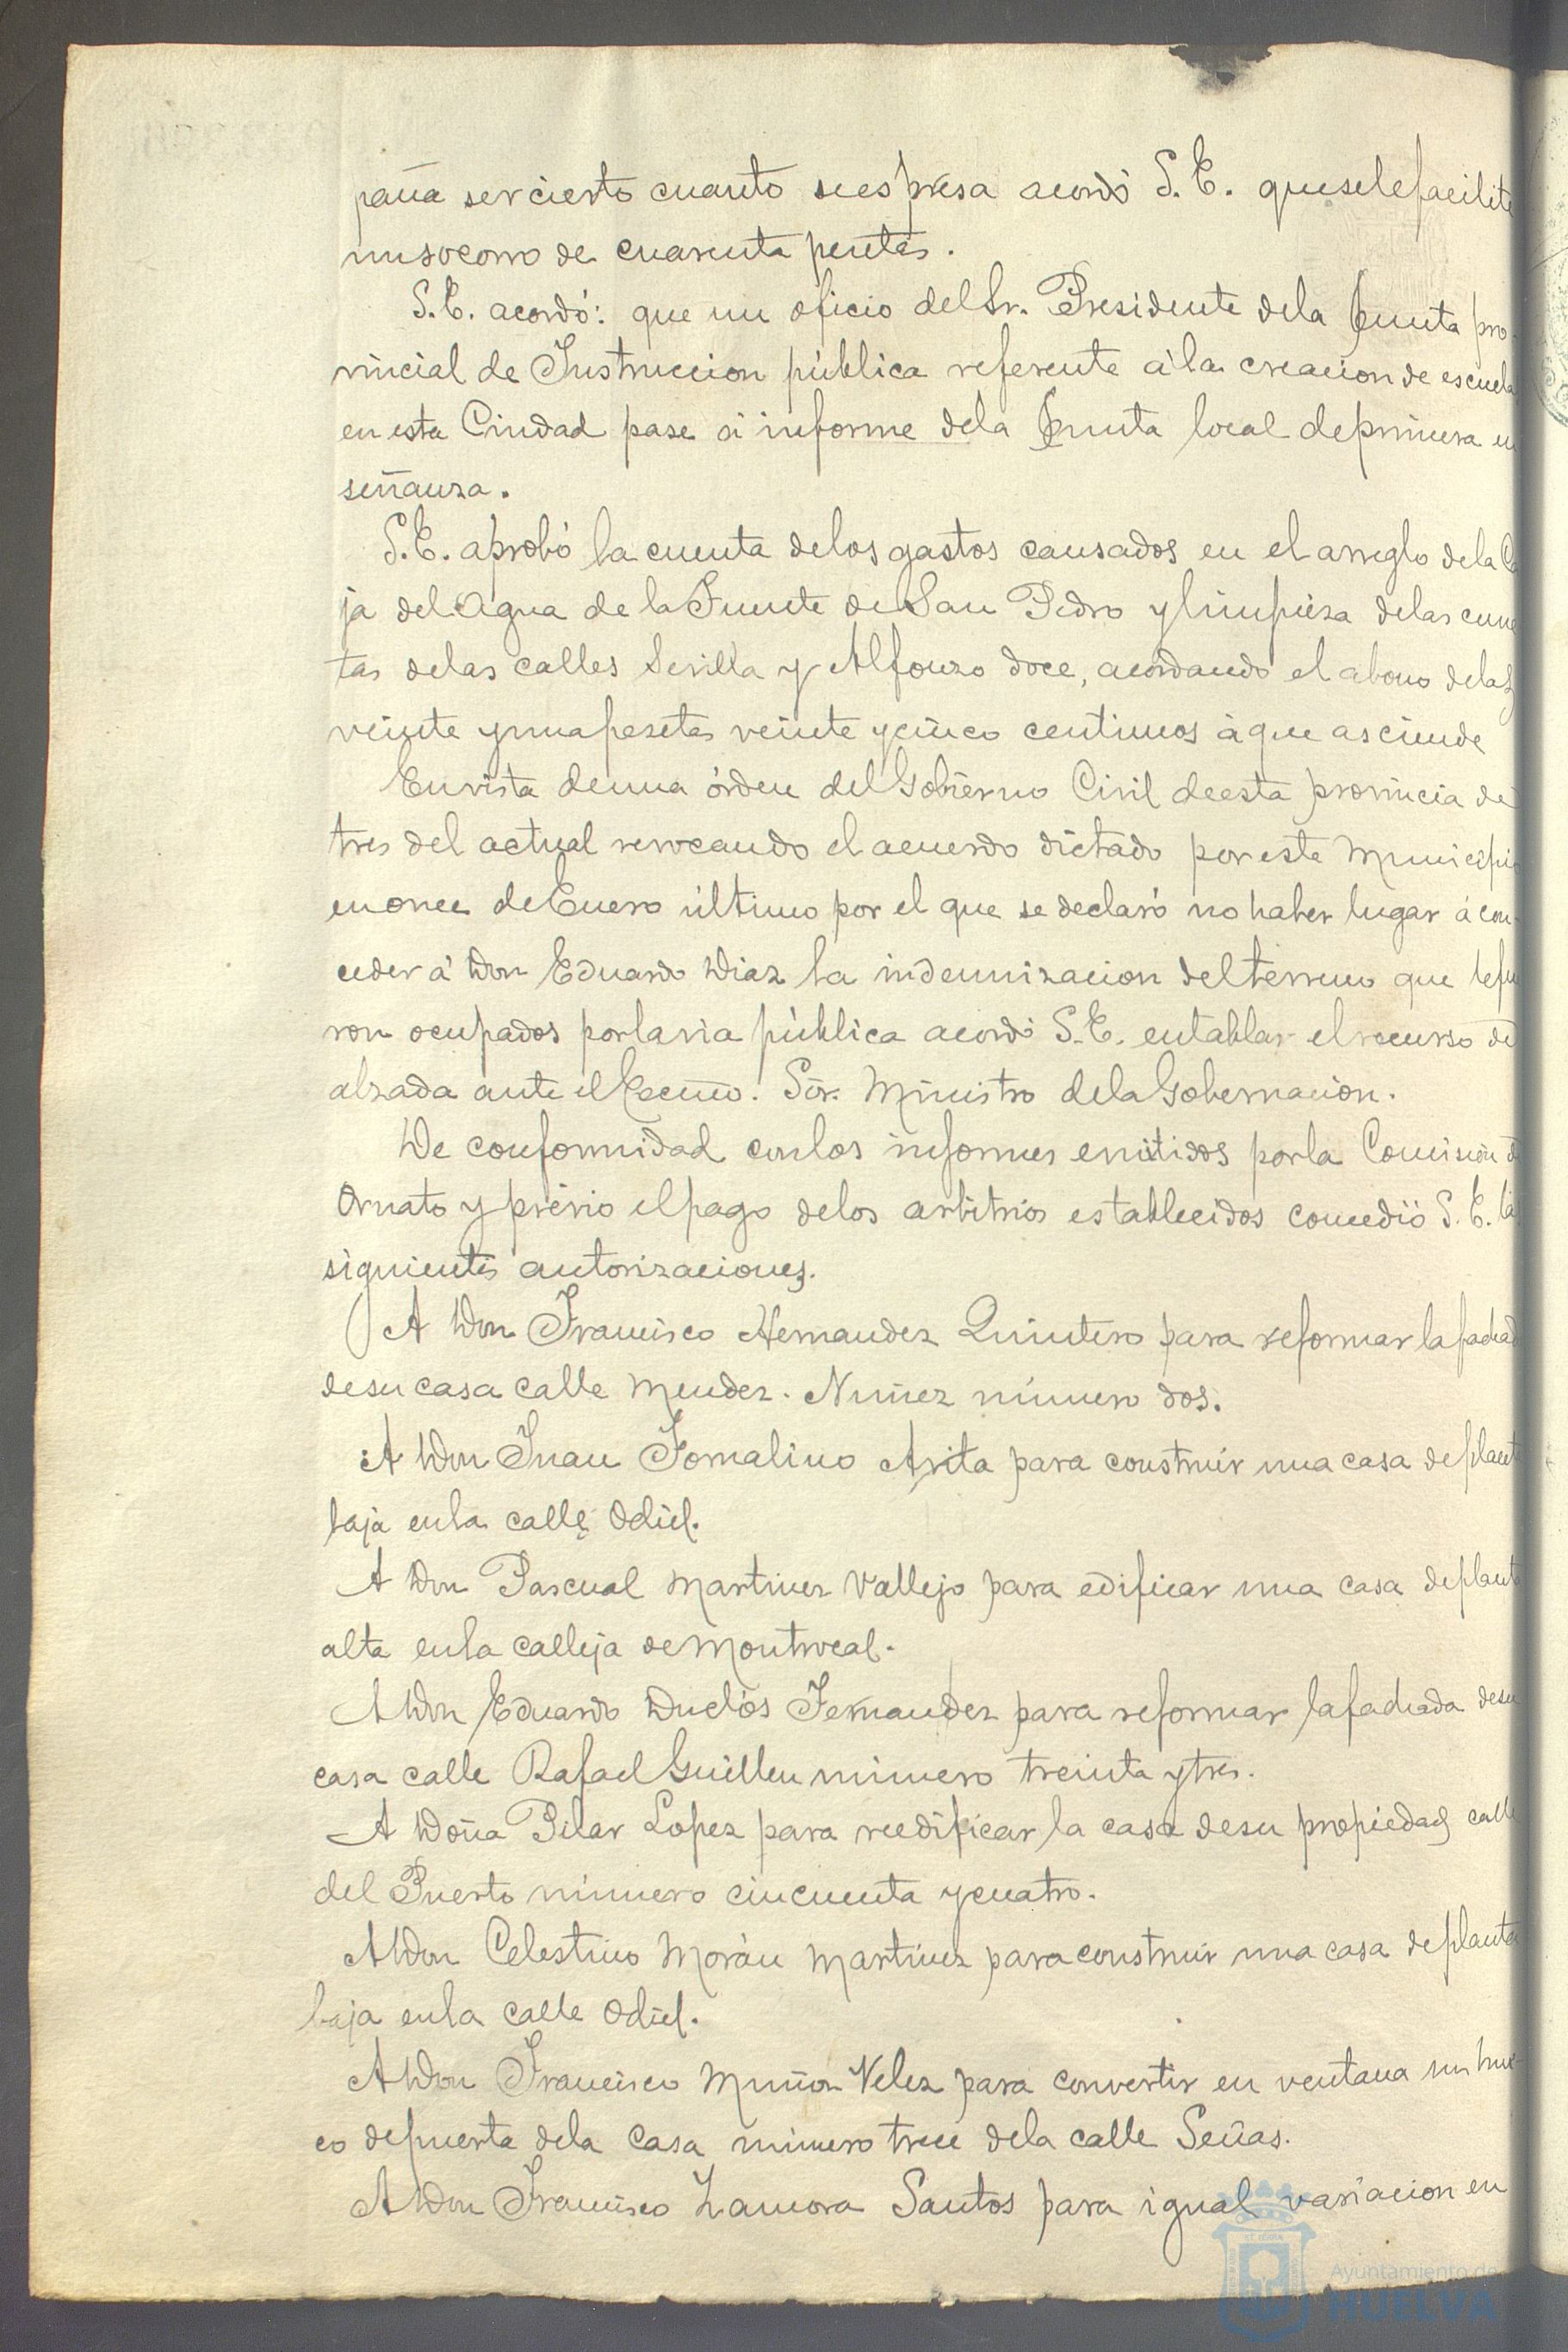 paña ser cierto cuanto se espresa acordó S. E. que se le facilite
un socorro de cuarenta pesetas.
S. E. acordó: que un oficio del Sr. Presidente de la Junta pro-
vincial de Instruccion pública referente á la creacion de escuela
en esta Ciudad pase á informe de la Junta local de primera en
señanza.
S. E. aprobó la cuenta de los gastos causados en el arreglo de la Ca
ja del Agua de la Fuente de San Pedro y limpieza de las cune
tas de las calles Sevilla y Alfonzo doce, acordando el abono de las
veinte y una pesetas veinte y cinco centimos á que asciende
En vista de una órden del Gobierno Civil de esta provincia de
tres del actual revocando el acuerdo dictado por este Municipio
en once de Enero último por el que se declaró no haber lugar á con-
ceder á Don Eduardo Diaz la indemnizacion del terreno que le fue
ron ocupados por la via pública acordó S. E. entablar el recurso de
alzada ante el Excmo. Sor. Ministro de la Gobernacion.
De conformidad con los informes emitidos por la Comision de
Ornato y prévio el pago de los arbitrios establecidos concedió S. E. las
siguientes autorizaciones.
A Don Francisco Hernandez Quintero para reformar la fachad
de su casa calle Mendez-Nuñez número dos.
A Don Juan Fornalino Arita para construir una casa de plant
baja en la calle Odiel.
A Don Pascual Martinez Vallejo para edificar una casa de plant
alta en la calleja de Montrocal.
A Don Eduardo Duclós Fernandez para reformar la fachada de su
casa calle Rafael Guillen número treinta y tres.
A Doña Pilar Lopez para reedificar la casa de su propiedad calle
del Puerto número cincuenta y cuatro.
A Don Celestino Morán Martinez para construir una casa de planta
baja en la calle Odiel.
A Don Francisco Muñoz Velez para convertir en ventana un hue-
co de puerta de la casa número trece de la calle Señas.
A Don Francisco Zamora Santos para igual variacion en
Ayuntamiento de
HUELVA